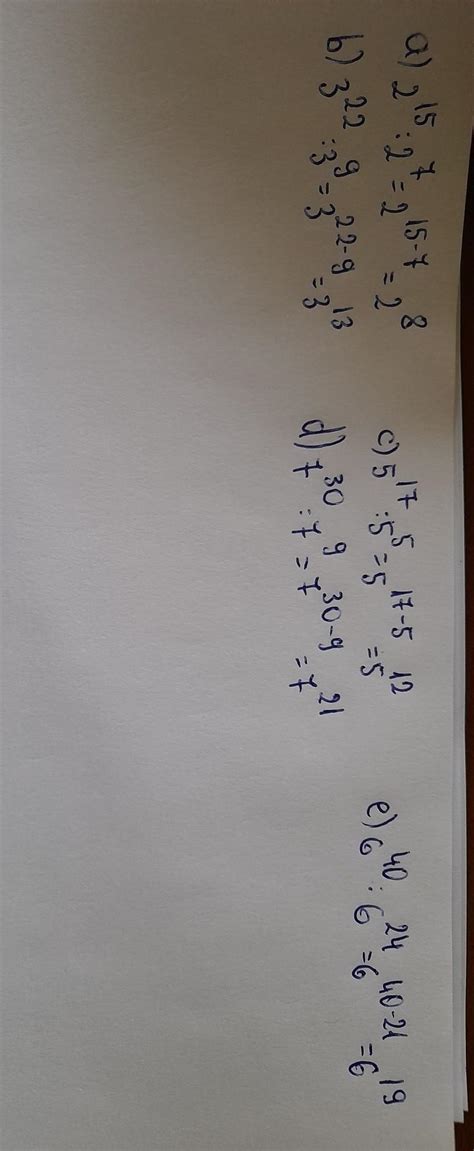 a) 2¹⁵ : 2⁷ = 2¹⁵⁻⁷ = 2⁸
b) 3²² : 3⁹ = 3²²⁻⁹ = 3¹³
c) 5¹⁷ : 5⁵ = 5¹⁷⁻⁵ = 5¹²
d) 7³⁰ : 7⁹ = 7³⁰⁻⁹ = 7²¹
e) 6⁴⁰ : 6²⁴ = 6⁴⁰⁻²¹ = 6¹⁹